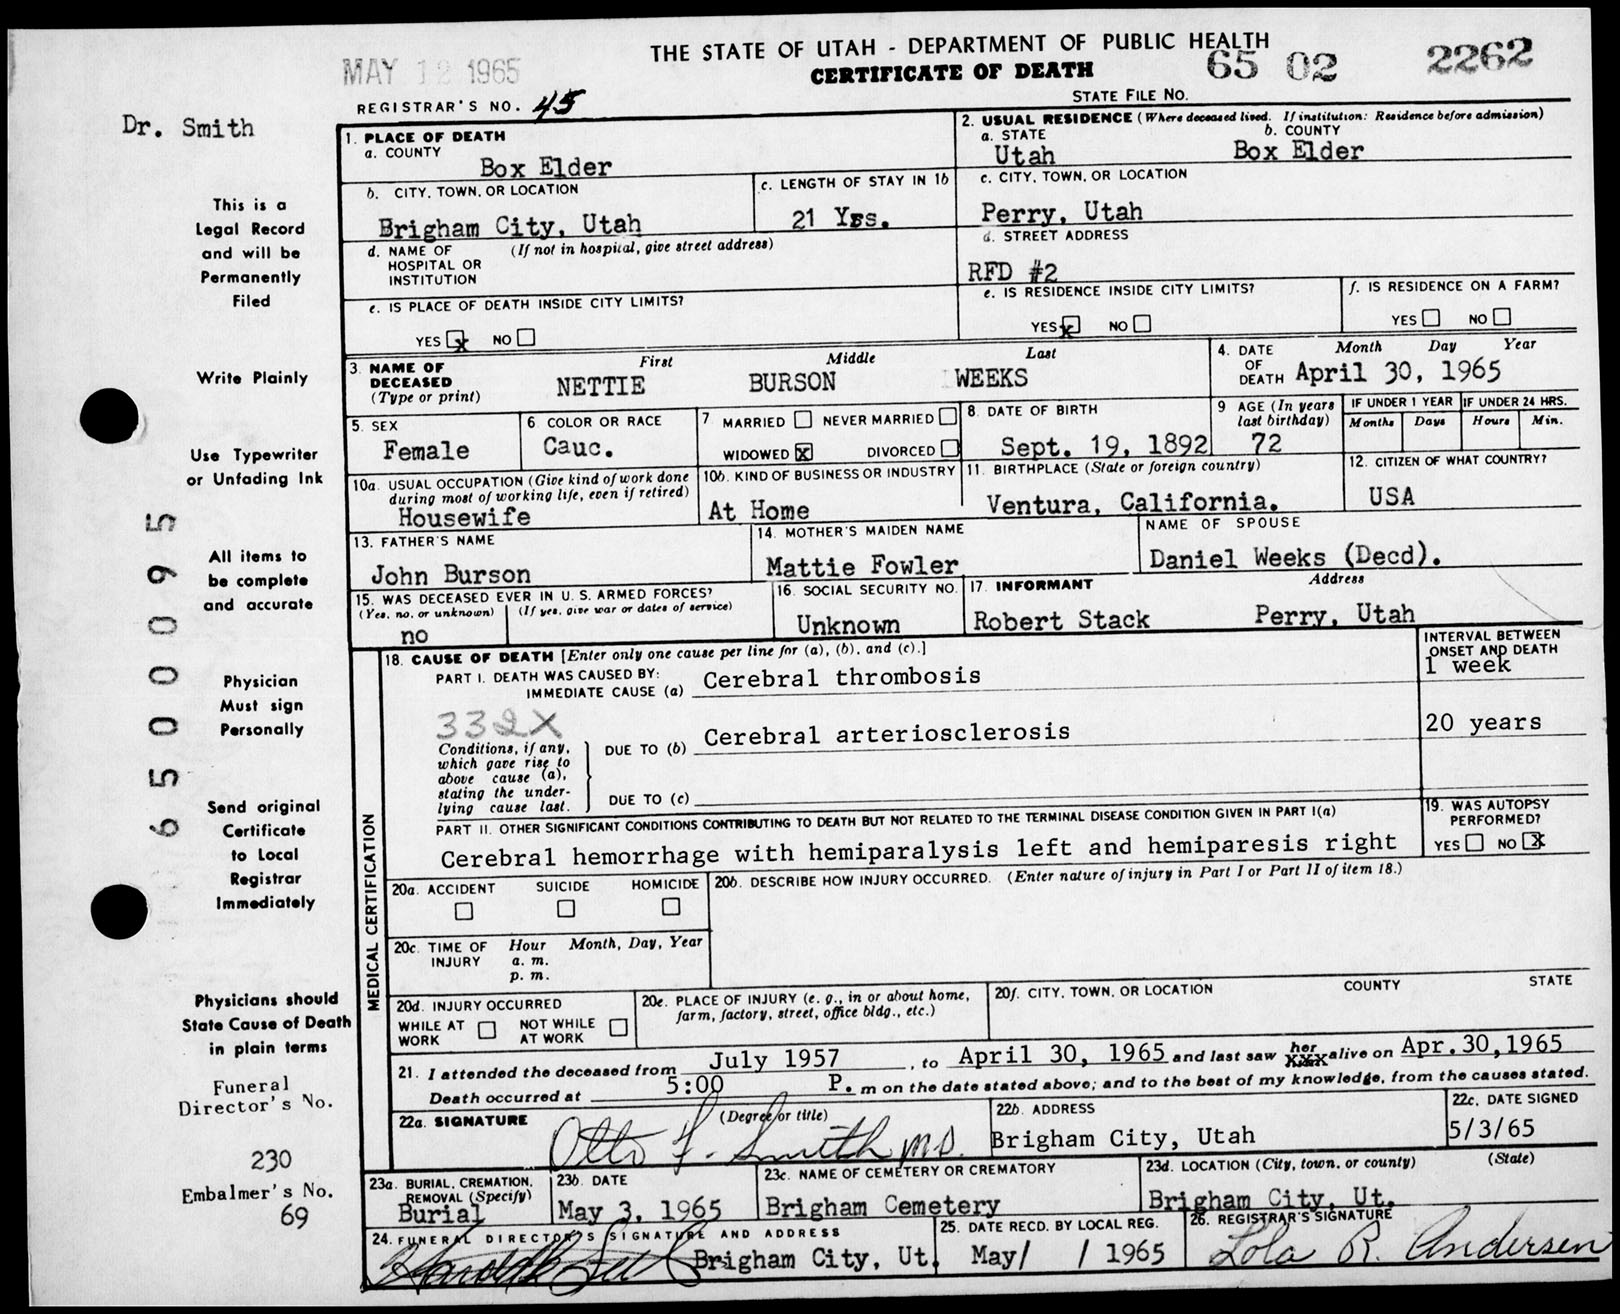 THE STATE OF UTAH - DEPARTMENT OF PUBLIC HEALTH
CERTIFICATE OF DEATH
65 02 2262
STATE FILE NO.
MAY 12 1965
REGISTRAR'S NO. 45
Dr. Smith
This is a
Legal Record
and will be
Permanently
Filed
Write Plainly
Use Typewriter
or Unfading Ink
All items to
be complete
and accurate
Physician
Must sign
Personally
Send original
Certificate
to Local
Registrar
Immediately
Physicians should
State Cause of Death
in plain terms
Funeral
Director's No.
230
Embalmer's No.
69
65000095
1. PLACE OF DEATH
a. COUNTY
Box Elder
2. USUAL RESIDENCE (Where deceased lived. If institution: Residence before admission)
a. STATE b. COUNTY
Utah Box Elder
b. CITY, TOWN, OR LOCATION
Brigham City, Utah
c. LENGTH OF STAY IN 1b
21 Yrs.
c. CITY, TOWN, OR LOCATION
Perry, Utah
d. NAME OF (If not in hospital, give street address)
HOSPITAL OR
INSTITUTION
d. STREET ADDRESS
RFD #2
e. IS PLACE OF DEATH INSIDE CITY LIMITS?
YES x NO
e. IS RESIDENCE INSIDE CITY LIMITS?
YES x NO
f. IS RESIDENCE ON A FARM?
YES NO
3. NAME OF
DECEASED
(Type or print)
First Middle Last
NETTIE BURSON WEEKS
4. DATE
OF
DEATH
Month Day Year
April 30, 1965
5. SEX
Female
6. COLOR OR RACE
Cauc.
7 MARRIED NEVER MARRIED
WIDOWED X DIVORCED
8. DATE OF BIRTH
Sept. 19, 1892
9 AGE (In years
last birthday)
72
IF UNDER 1 YEAR IF UNDER 24 HRS.
Months Days Hours Min.
10a. USUAL OCCUPATION (Give kind of work done
during most of working life, even if retired)
Housewife
10b. KIND OF BUSINESS OR INDUSTRY
At Home
11. BIRTHPLACE (State or foreign country)
Ventura, California.
12. CITIZEN OF WHAT COUNTRY?
USA
13. FATHER'S NAME
John Burson
14. MOTHER'S MAIDEN NAME
Mattie Fowler
NAME OF SPOUSE
Daniel Weeks (Decd).
15. WAS DECEASED EVER IN U. S. ARMED FORCES?
(Yes, no, or unknown) (If yes, give war or dates of service)
no
16. SOCIAL SECURITY NO.
Unknown
17. INFORMANT Address
Robert Stack Perry, Utah
MEDICAL CERTIFICATION
18. CAUSE OF DEATH [Enter only one cause per line for (a), (b), and (c).]
INTERVAL BETWEEN
ONSET AND DEATH
PART I. DEATH WAS CAUSED BY:
IMMEDIATE CAUSE (a) Cerebral thrombosis 1 week
332X
Conditions, if any,
which gave rise to
above cause (a),
stating the under-
lying cause last.
DUE TO (b) Cerebral arteriosclerosis 20 years
DUE TO (c)
PART II. OTHER SIGNIFICANT CONDITIONS CONTRIBUTING TO DEATH BUT NOT RELATED TO THE TERMINAL DISEASE CONDITION GIVEN IN PART I(a)
Cerebral hemorrhage with hemiparalysis left and hemiparesis right
19. WAS AUTOPSY
PERFORMED?
YES NO X
20a. ACCIDENT SUICIDE HOMICIDE
20b. DESCRIBE HOW INJURY OCCURRED. (Enter nature of injury in Part I or Part II of item 18.)
20c. TIME OF Hour Month, Day, Year
INJURY a. m.
p. m.
20d. INJURY OCCURRED
WHILE AT NOT WHILE
WORK AT WORK
20e. PLACE OF INJURY (e. g., in or about home,
farm, factory, street, office bldg., etc.)
20f. CITY, TOWN, OR LOCATION COUNTY STATE
21. I attended the deceased from July 1957, to April 30, 1965 and last saw her XXX alive on Apr.30,1965
Death occurred at 5:00 P. m on the date stated above; and to the best of my knowledge, from the causes stated.
22a. SIGNATURE (Degree or title)
Otto F. Smith MD.
22b. ADDRESS
Brigham City, Utah
22c. DATE SIGNED
5/3/65
23a. BURIAL, CREMATION,
REMOVAL (Specify)
Burial
23b. DATE
May 3, 1965
23c. NAME OF CEMETERY OR CREMATORY
Brigham Cemetery
23d. LOCATION (City, town, or county) (State)
Brigham City, Ut.
24. FUNERAL DIRECTOR'S SIGNATURE AND ADDRESS
Brigham City, Ut.
25. DATE RECD. BY LOCAL REG.
May/ / 1965
26. REGISTRAR'S SIGNATURE
Lola R. Andersen